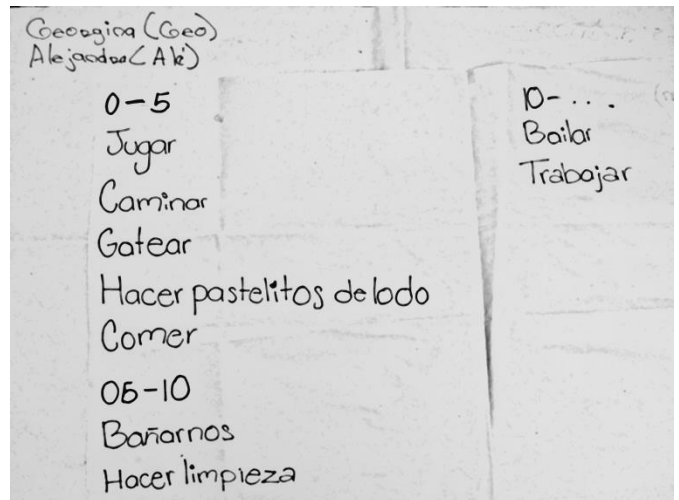 Georgina (Geo)
Alejandra (Ale)
0-5
Jugar
Caminar
Gatear
Hacer pastelitos de lodo
Comer
05-10
Bañarnos
Hacer limpieza
10-...
Bailar
Trabajar